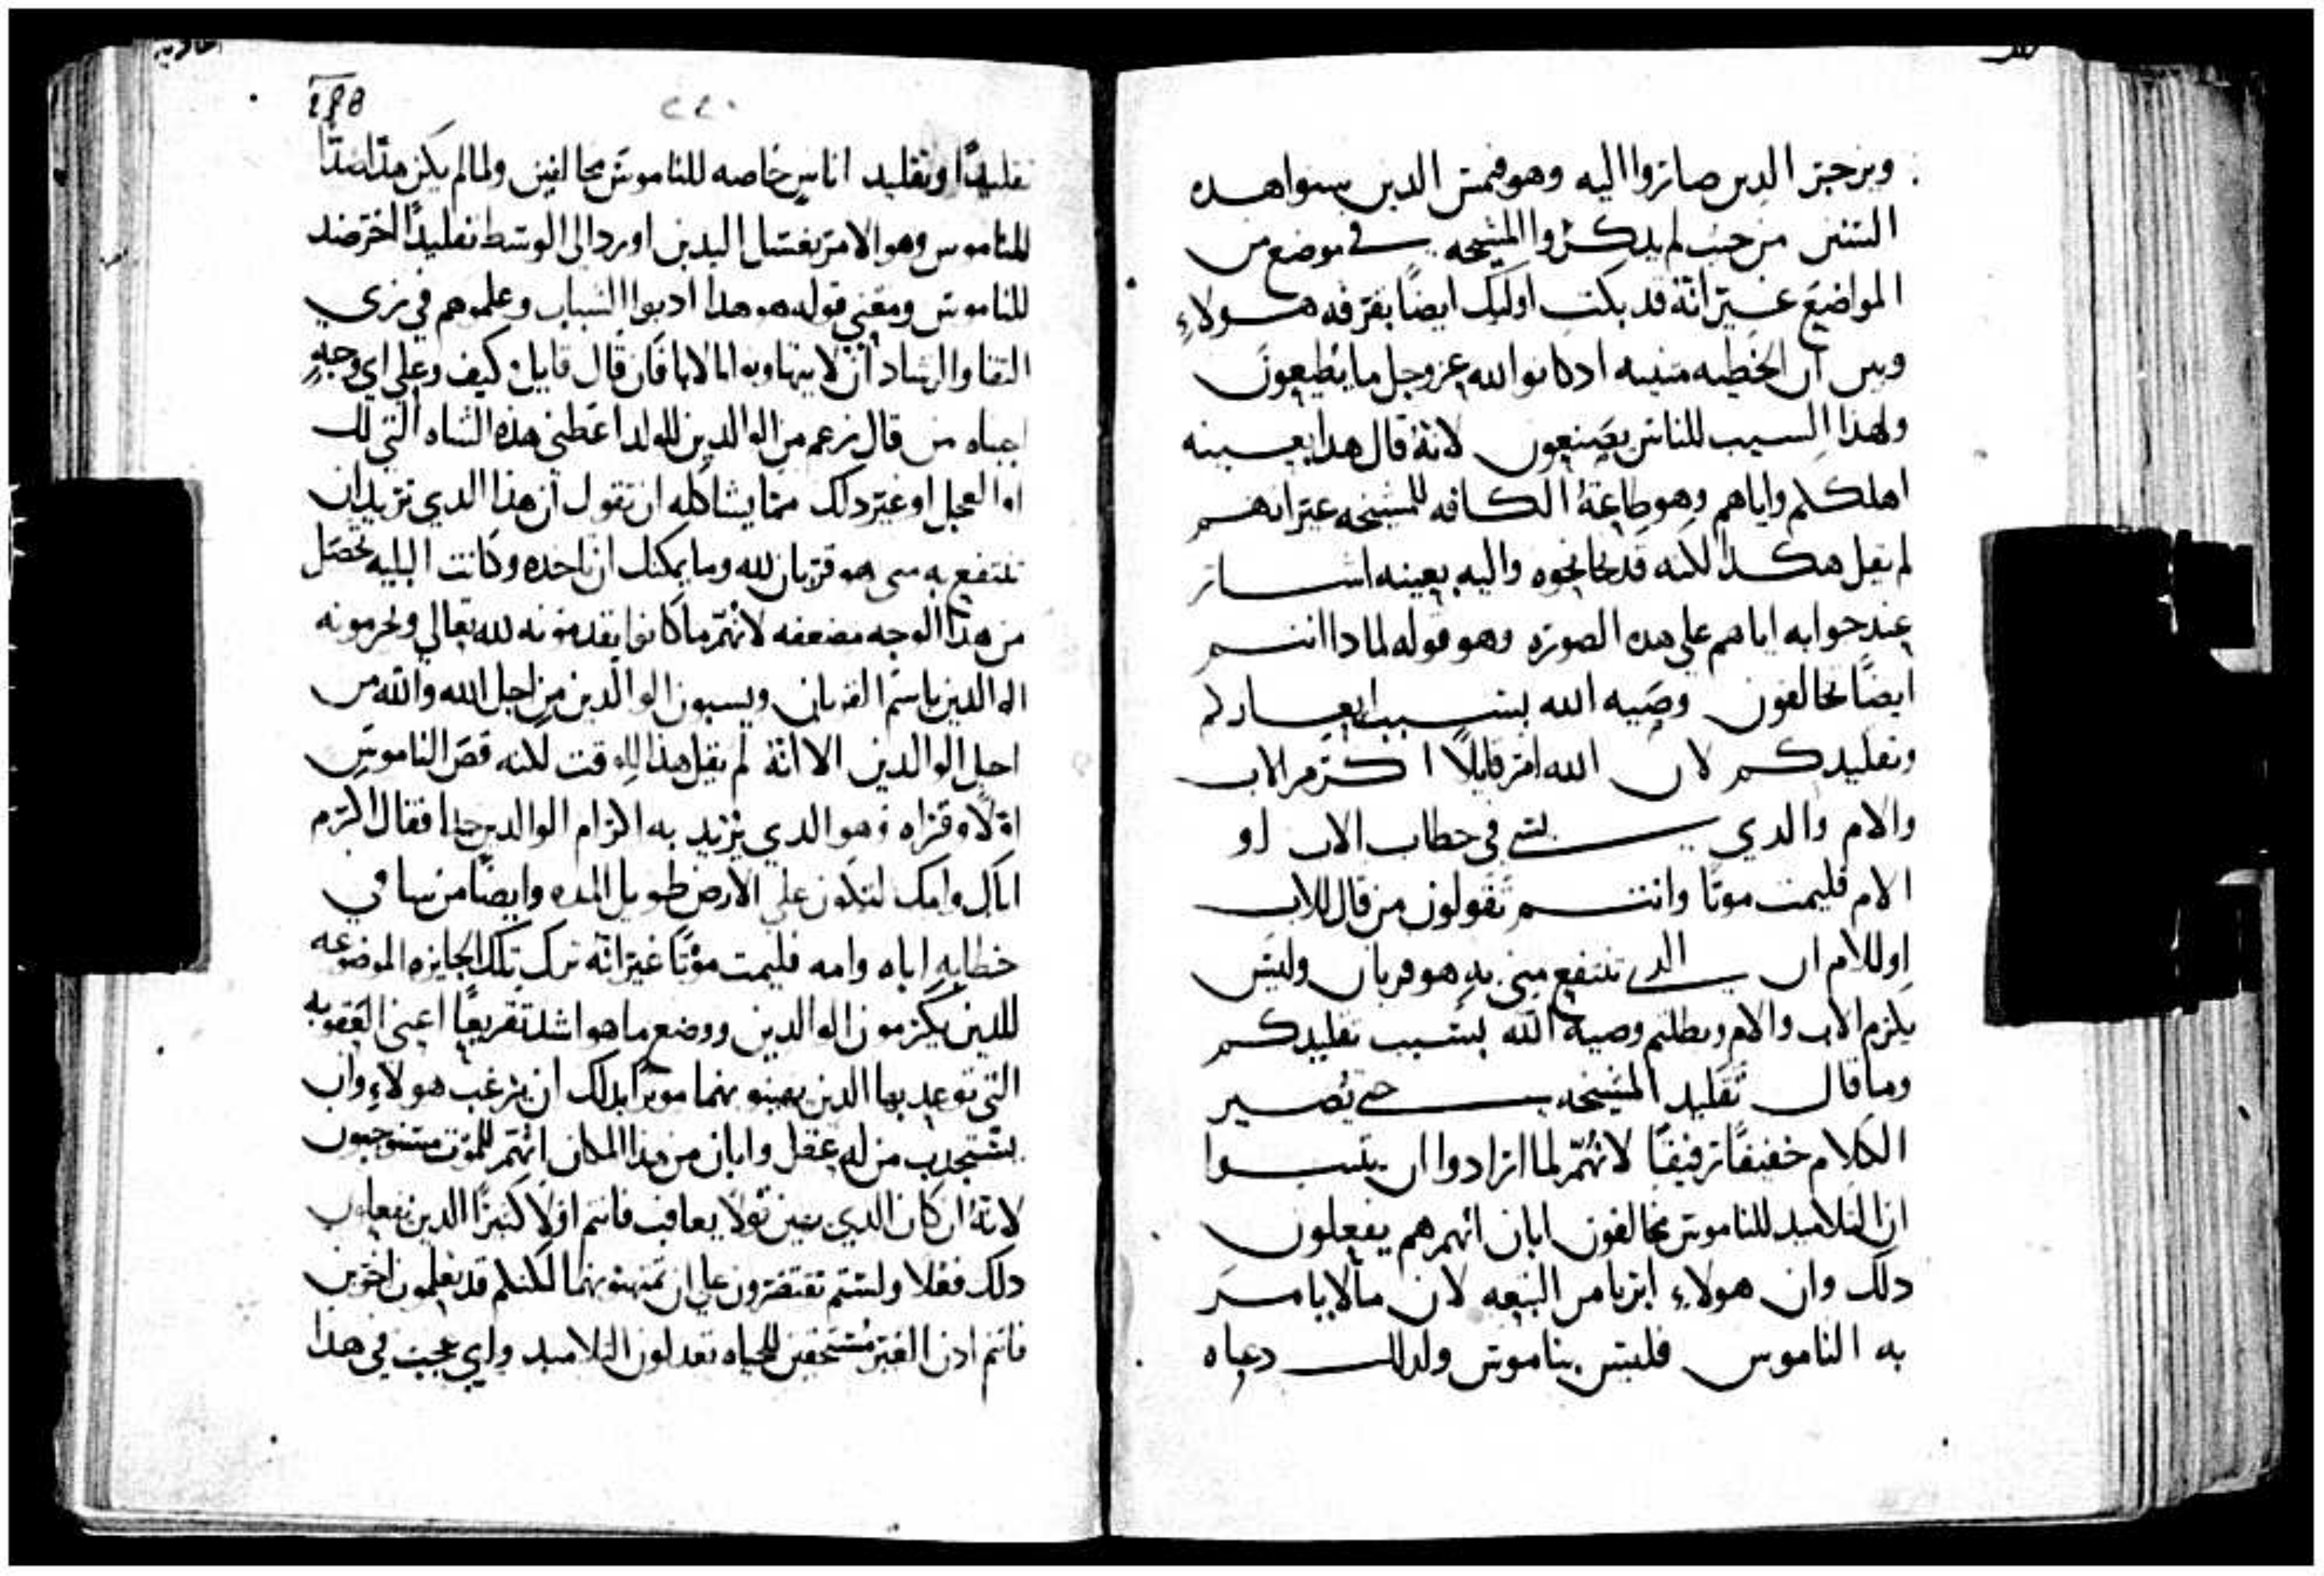 ويزجر الدين صاروا اليه وهو قمش الدين سواهده
السنن من حيث لم يدكروا المشيخه في موضع من
المواضع غير انه قد بكت اوليك ايضًا بقرفه هولاء
وبين ان الخطيه مثنيه ادكانوا الله عز وجل ما يطيعون
ولهذا السبب للناس يصنعون لانه قال هدا بعينه
اهلككم واياهم وهو طاعة الكافه للمشيخه غير انه
لم يقل هكذا لكنه قد نحا نحوه واليه بعينه اشار
عند جوابه اياهم على هده الصوره وهو قوله لمادا انتم
ايضًا تخالفون وصيه الله بسبب
وتقليدكم لان الله امر قايلًا اكرم الاب
والام والدي في خطاب الاب او
الام فليمت موتًا وانتم تقولون من قال للاب
او للام ان الدي تنتفع مني به هو قربان وليس
يلزم الاب والام وبطلتم وصية الله بسبب تقليدكم
وما قال تقليد المشيخه حتى يصير
الكلام خفيفًا رفيقًا لانهم لما ارادوا ان يثبتوا
ان التلاميد للناموس مخالفون ابان انهم هم يفعلون
دلك وان هولاء ابريا من التبعه لان ما لا يامر
به الناموس فليس بناموس ولدلك دعاه
٢٢٠
تقليدًا وتقليد اناس خاصه للناموس مخالفين ولما لم يكن هذا ضدًا
للناموس وهو الامر بغسل اليدين اورد الى الوسط تقليدًا اخر ضد
للناموس ومعنى قوله هو هدا ادبوا الشباب وعلموهم في زي
التقا والرشاد ان لا يتهاونوا بالابا فان قال قايل كيف وعلى اي وجه
اجباه من قال زعم من الوالدين للولد اعطني هذه الشاه التي لك
او العجل او غير دلك مما يشاكله ان تقول ان هذا الدي تريد ان
تنتفع به مني هو قربان لله وما يمكنك ان تاخده وكانت البليه تحصل
من هذا الوجه مضعفه لانهم ما كانوا يقدمونه لله تعالى ويحرمونه
الوالدين باسم القربان ويسبون الوالدين من اجل الله والله من
اجل الوالدين الا انه لم يقل هذا للوقت لكنه قص الناموس
اولًا وقراه وهو الدي يزيد به اكرام الوالدين جدا فقال اكرم
اباك وامك لتكون على الارض طويل المده وايضًا من يسا في
خطابه اباه وامه فليمت موتًا غير انه ترك تلك الجايزه الموضوعه
للدين يكرمون الوالدين ووضع ما هو اشد تقريعًا اعني العقوبه
التي توعد بها الدين يهينونهما موثرًا بدلك ان يرغب هولاء وان
يستجدب من له عقل وابان من هذا المكان انهم للموت مستوجبون
لانه ان كان الدي يهين قولًا يعاقب فانتم اولًا كثيرًا الدين تفعلون
دلك فعلا ولستم تقتصرون على ان تهينونهما لكنكم قد تعلمون اخرين
فانتم ادن الغير مستحقين للحياه تعدلون التلاميد واي عجب في هذا